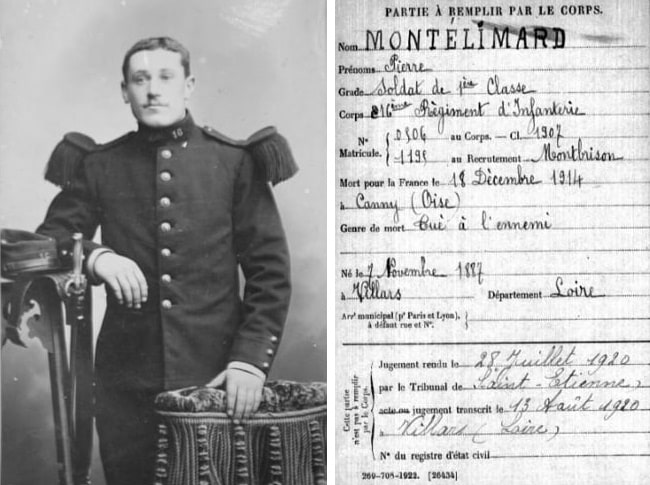 16
PARTIE À REMPLIR PAR LE CORPS.
Nom MONTÉLIMARD
Prénoms Pierre
Grade Soldat de 1ère Classe
Corps 216ème Régiment d'Infanterie
N° Matricule. { 0506 au Corps. — Cl. 1907
1195 au Recrutement Montbrison
Mort pour la France le 18 Décembre 1914
à Canny (Oise)
Genre de mort Tué à l'ennemi
Né le 7 Novembre 1887
à Villars Département Loire
Arrt municipal (pr Paris et Lyon), à défaut rue et N°.
Cette partie n'est pas à remplir par le Corps.
Jugement rendu le 28 Juillet 1920
par le Tribunal de Saint-Etienne,
acte ou jugement transcrit le 13 Août 1920
à Villars (Loire)
N° du registre d'état civil
269-708-1922. [26434]